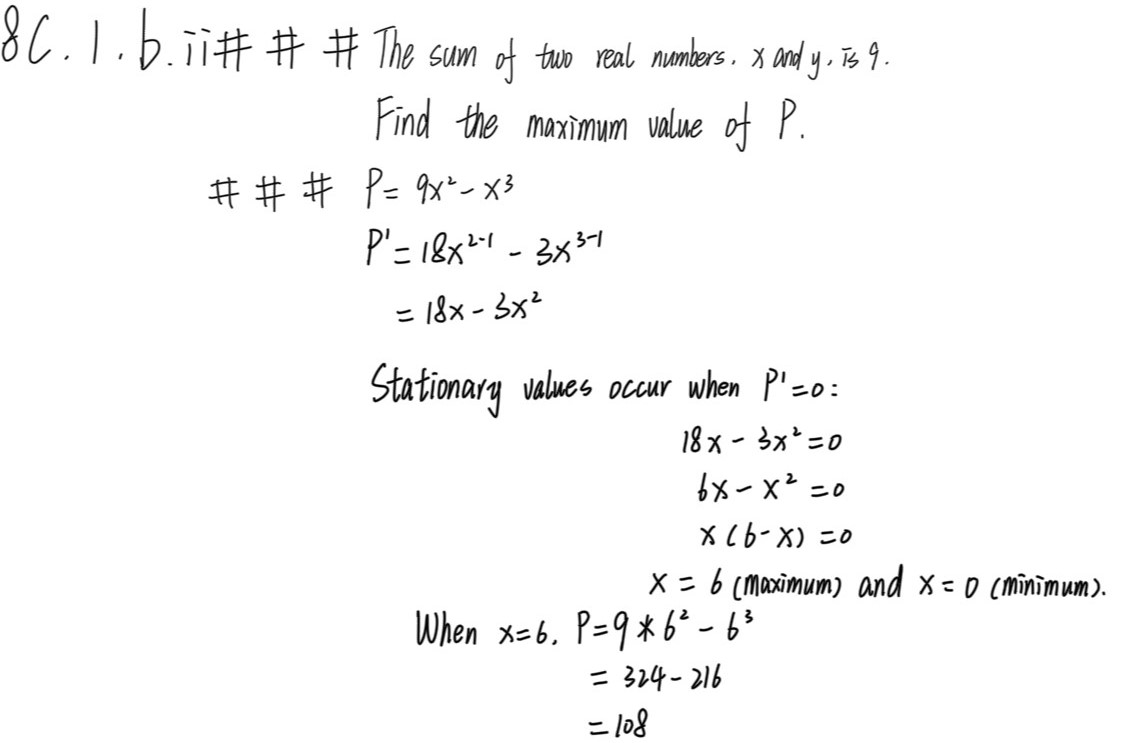 8C.1.b.ii# # # The sum of two real numbers, x and y, is 9.
Find the maximum value of P.
# # # P = 9x² - x³
P' = 18x²⁻¹ - 3x³⁻¹
= 18x - 3x²
Stationary values occur when P'=0:
18x - 3x² = 0
6x - x² = 0
x(6-x) = 0
x = 6 (maximum) and x = 0 (minimum).
When x=6, P = 9 * 6² - 6³
= 324 - 216
= 108